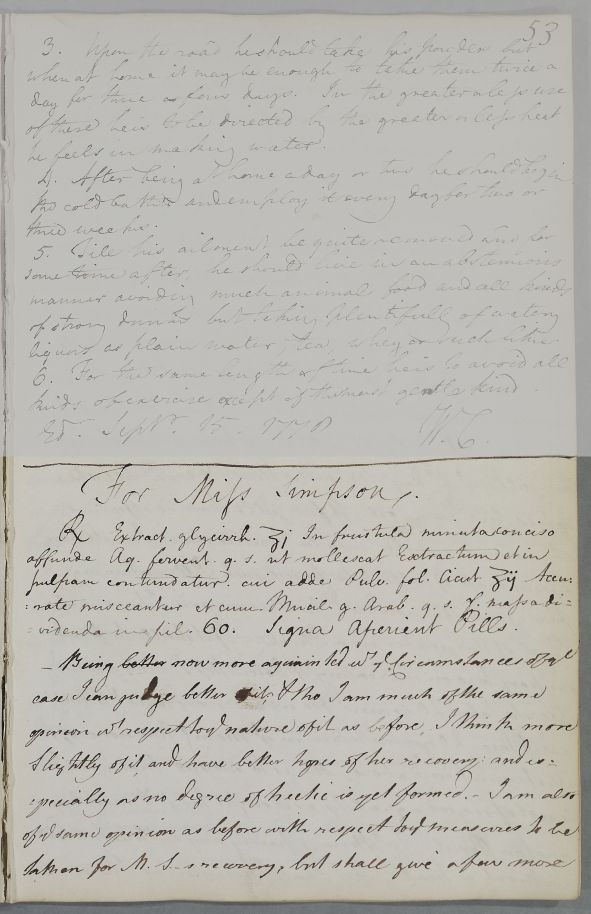 53
3. Upon the road he should take his powders but
when at home it may be enough to take them twice a
day for three or four days. In the greater or less use
of these he is to be directed by the greater or less heat
he feels in making water.
4. After being at home a day or two he should begin
the cold bath and employ it every day for two or
three weeks.
5. Till his ailment be quite removed and for
some time after, he should live in an abstemious
manner avoiding much animal food and all kinds
of strong drinks but taking plentifully of watery
liquors as plain water, tea, whey or such like.
6. For the same length of time he is to avoid all
kinds of exercise except of the most gentle kind.
Ed. Septr. 15. 1778 W. C.
For Miss Simpson.
Rx Extract. glycirrh. ʒj In frustula minuta conciso
affunde Aq. fervent. q. s. ut mollescat Extractum et in
pulpam contundatur. cui adde Pulv. fol. Cicut ʒij Accu:
:rate misceantur et cum Mucil. g. Arab. q. s. f. massa di:
:videnda in pil. 60. Signa Aperient Pills.
_ Being better now more acquainted wt. ye. Circumstances of ys.
case I can judge better of it & tho I am much of the same
opinion wt. respect to ye nature of it as before, I think more
slightly of it and have better hopes of her recovery: and es:
:pecially as no degree of hectic is yet formed. - I am also
of ye same opinion as before with respect to ye measures to be
taken for M. S_s recovery, but shall give a few more